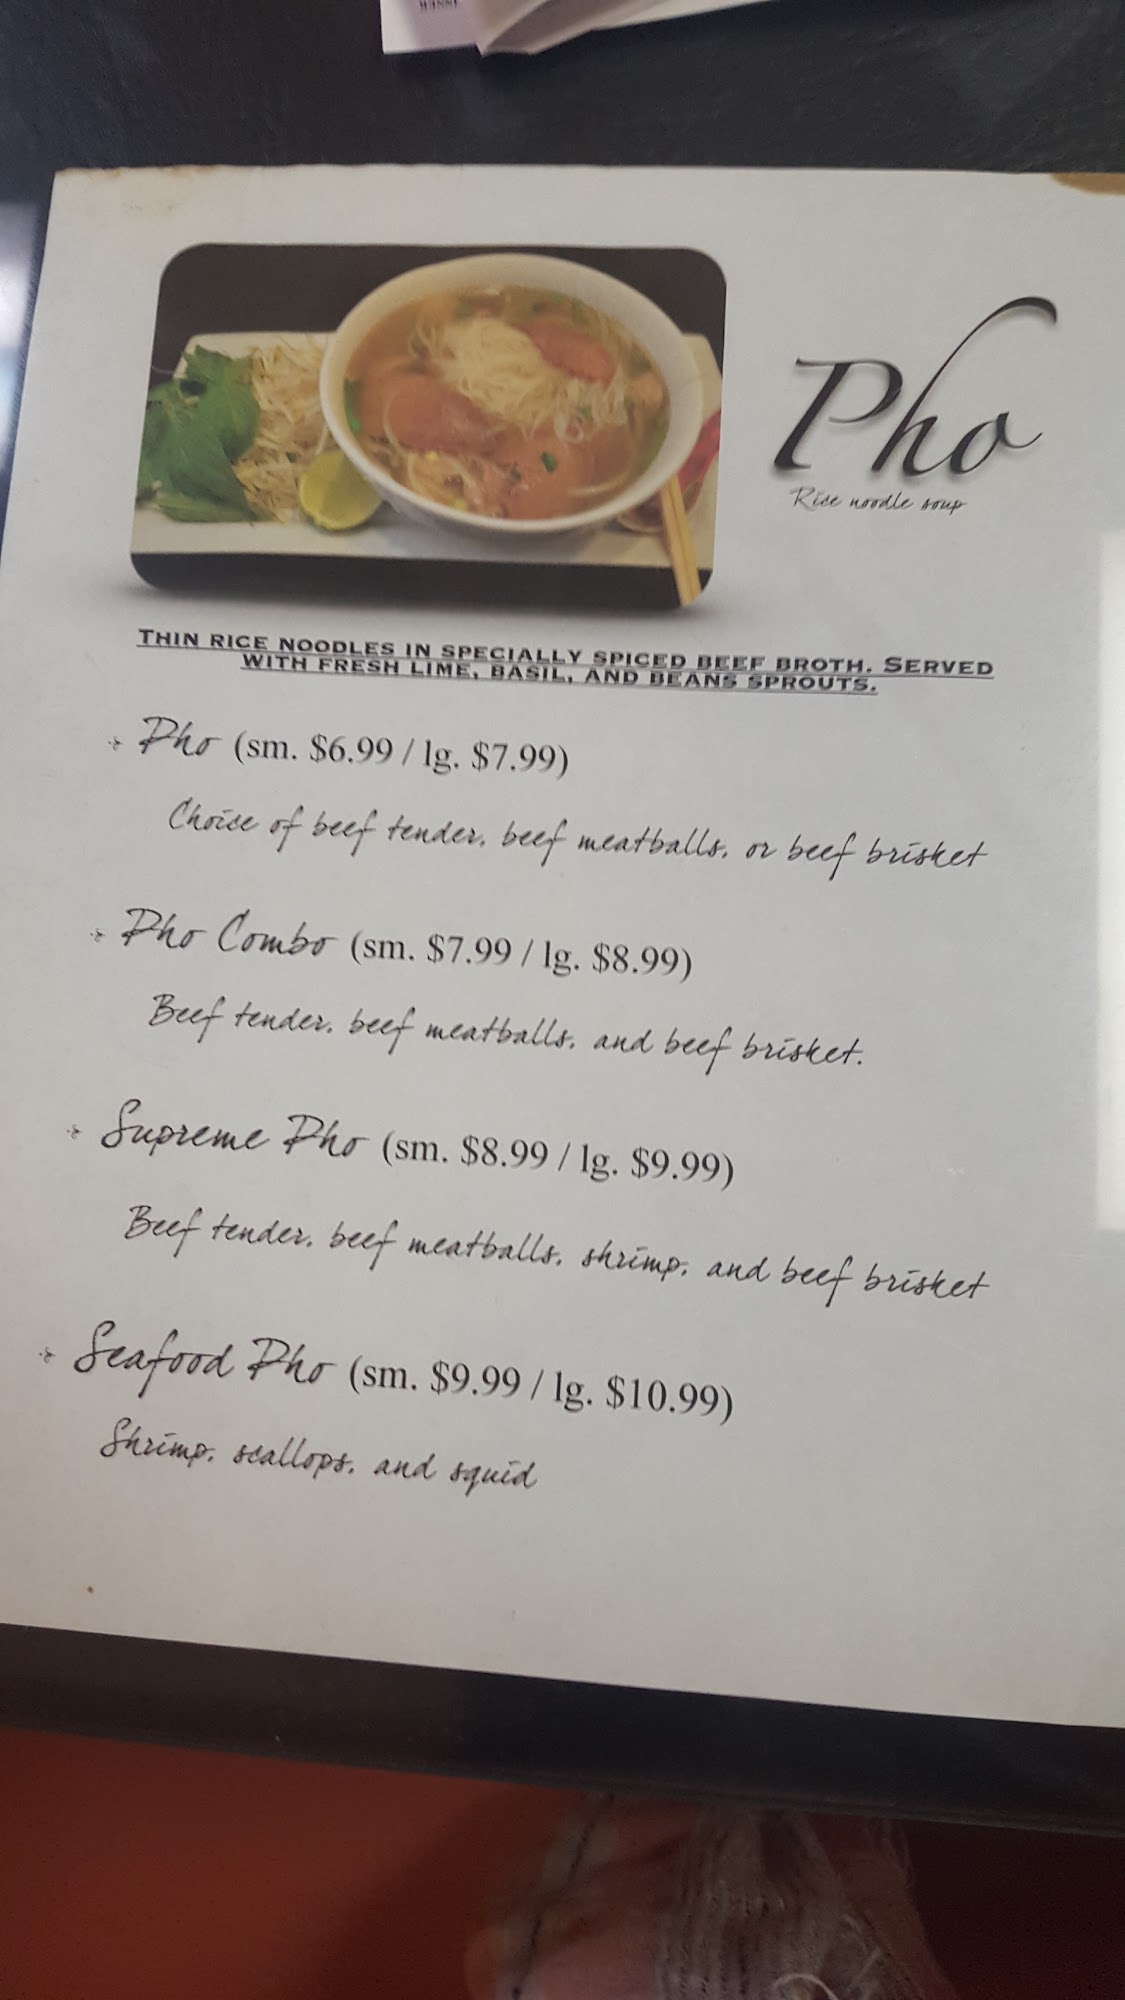 Pho
Rice noodle soup
THIN RICE NOODLES IN SPECIALLY SPICED BEEF BROTH. SERVED
WITH FRESH LIME, BASIL, AND BEANS SPROUTS.
Pho (sm. $6.99 / lg. $7.99)
Choice of beef tender, beef meatballs, or beef brisket
Pho Combo (sm. $7.99 / lg. $8.99)
Beef tender, beef meatballs, and beef brisket.
Supreme Pho (sm. $8.99 / lg. $9.99)
Beef tender, beef meatballs, shrimp, and beef brisket
Seafood Pho (sm. $9.99 / lg. $10.99)
Shrimp, scallops, and squid